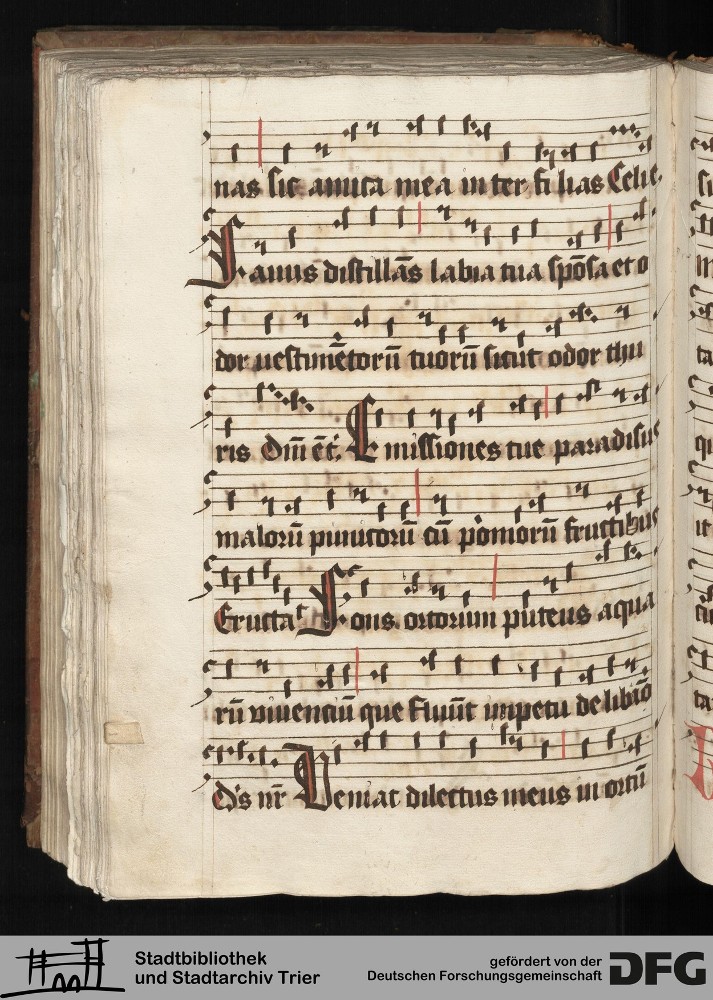 nas sic amica mea in ter fi lias Celi e.
Fauus distillās labia tua spōsa et o
dor uestimētorū tuorū sicut odor thu
ris Dm̄ ēt. Emissiones tue paradisus
malorū punicorū cū pomorū fructibus
Eructa Fons ortorum puteus aqua
rū viuenciū que fluūt impetu de libāo
Ds nr̄ Veniat dilectus meus in ortū
Stadtbibliothek
und Stadtarchiv Trier
gefördert von der
Deutschen Forschungsgemeinschaft
DFG